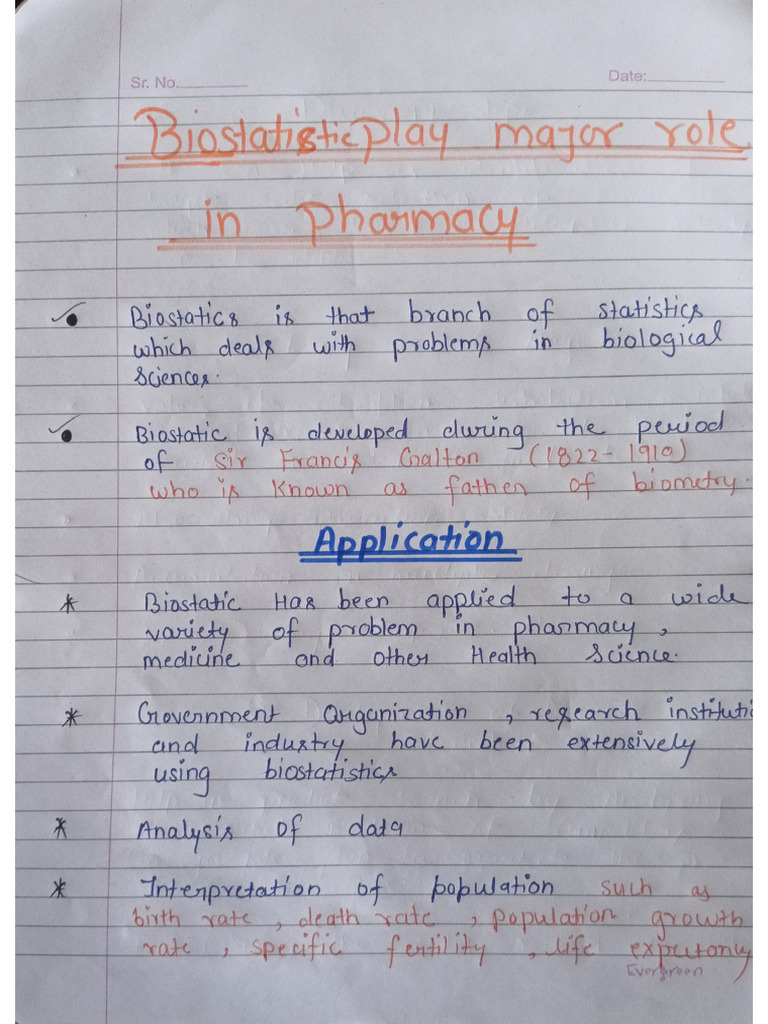 Sr. No.
Date:
Biostatistic play major role
in pharmacy
Biostatics is that branch of statistics
which deals with problems in biological
sciences.
Biostatic is developed during the period
of Sir Francis Galton (1822-1910)
who is known as father of biometry.
Application
* Biostatic Has been applied to a wide
variety of problem in pharmacy,
medicine and other Health Science.
* Government Organization, research instituti
and industry have been extensively
using biostatistics
* Analysis of data
* Interpretation of population such as
birth rate, death rate, population growth
rate, specific fertility, life
Evergreen